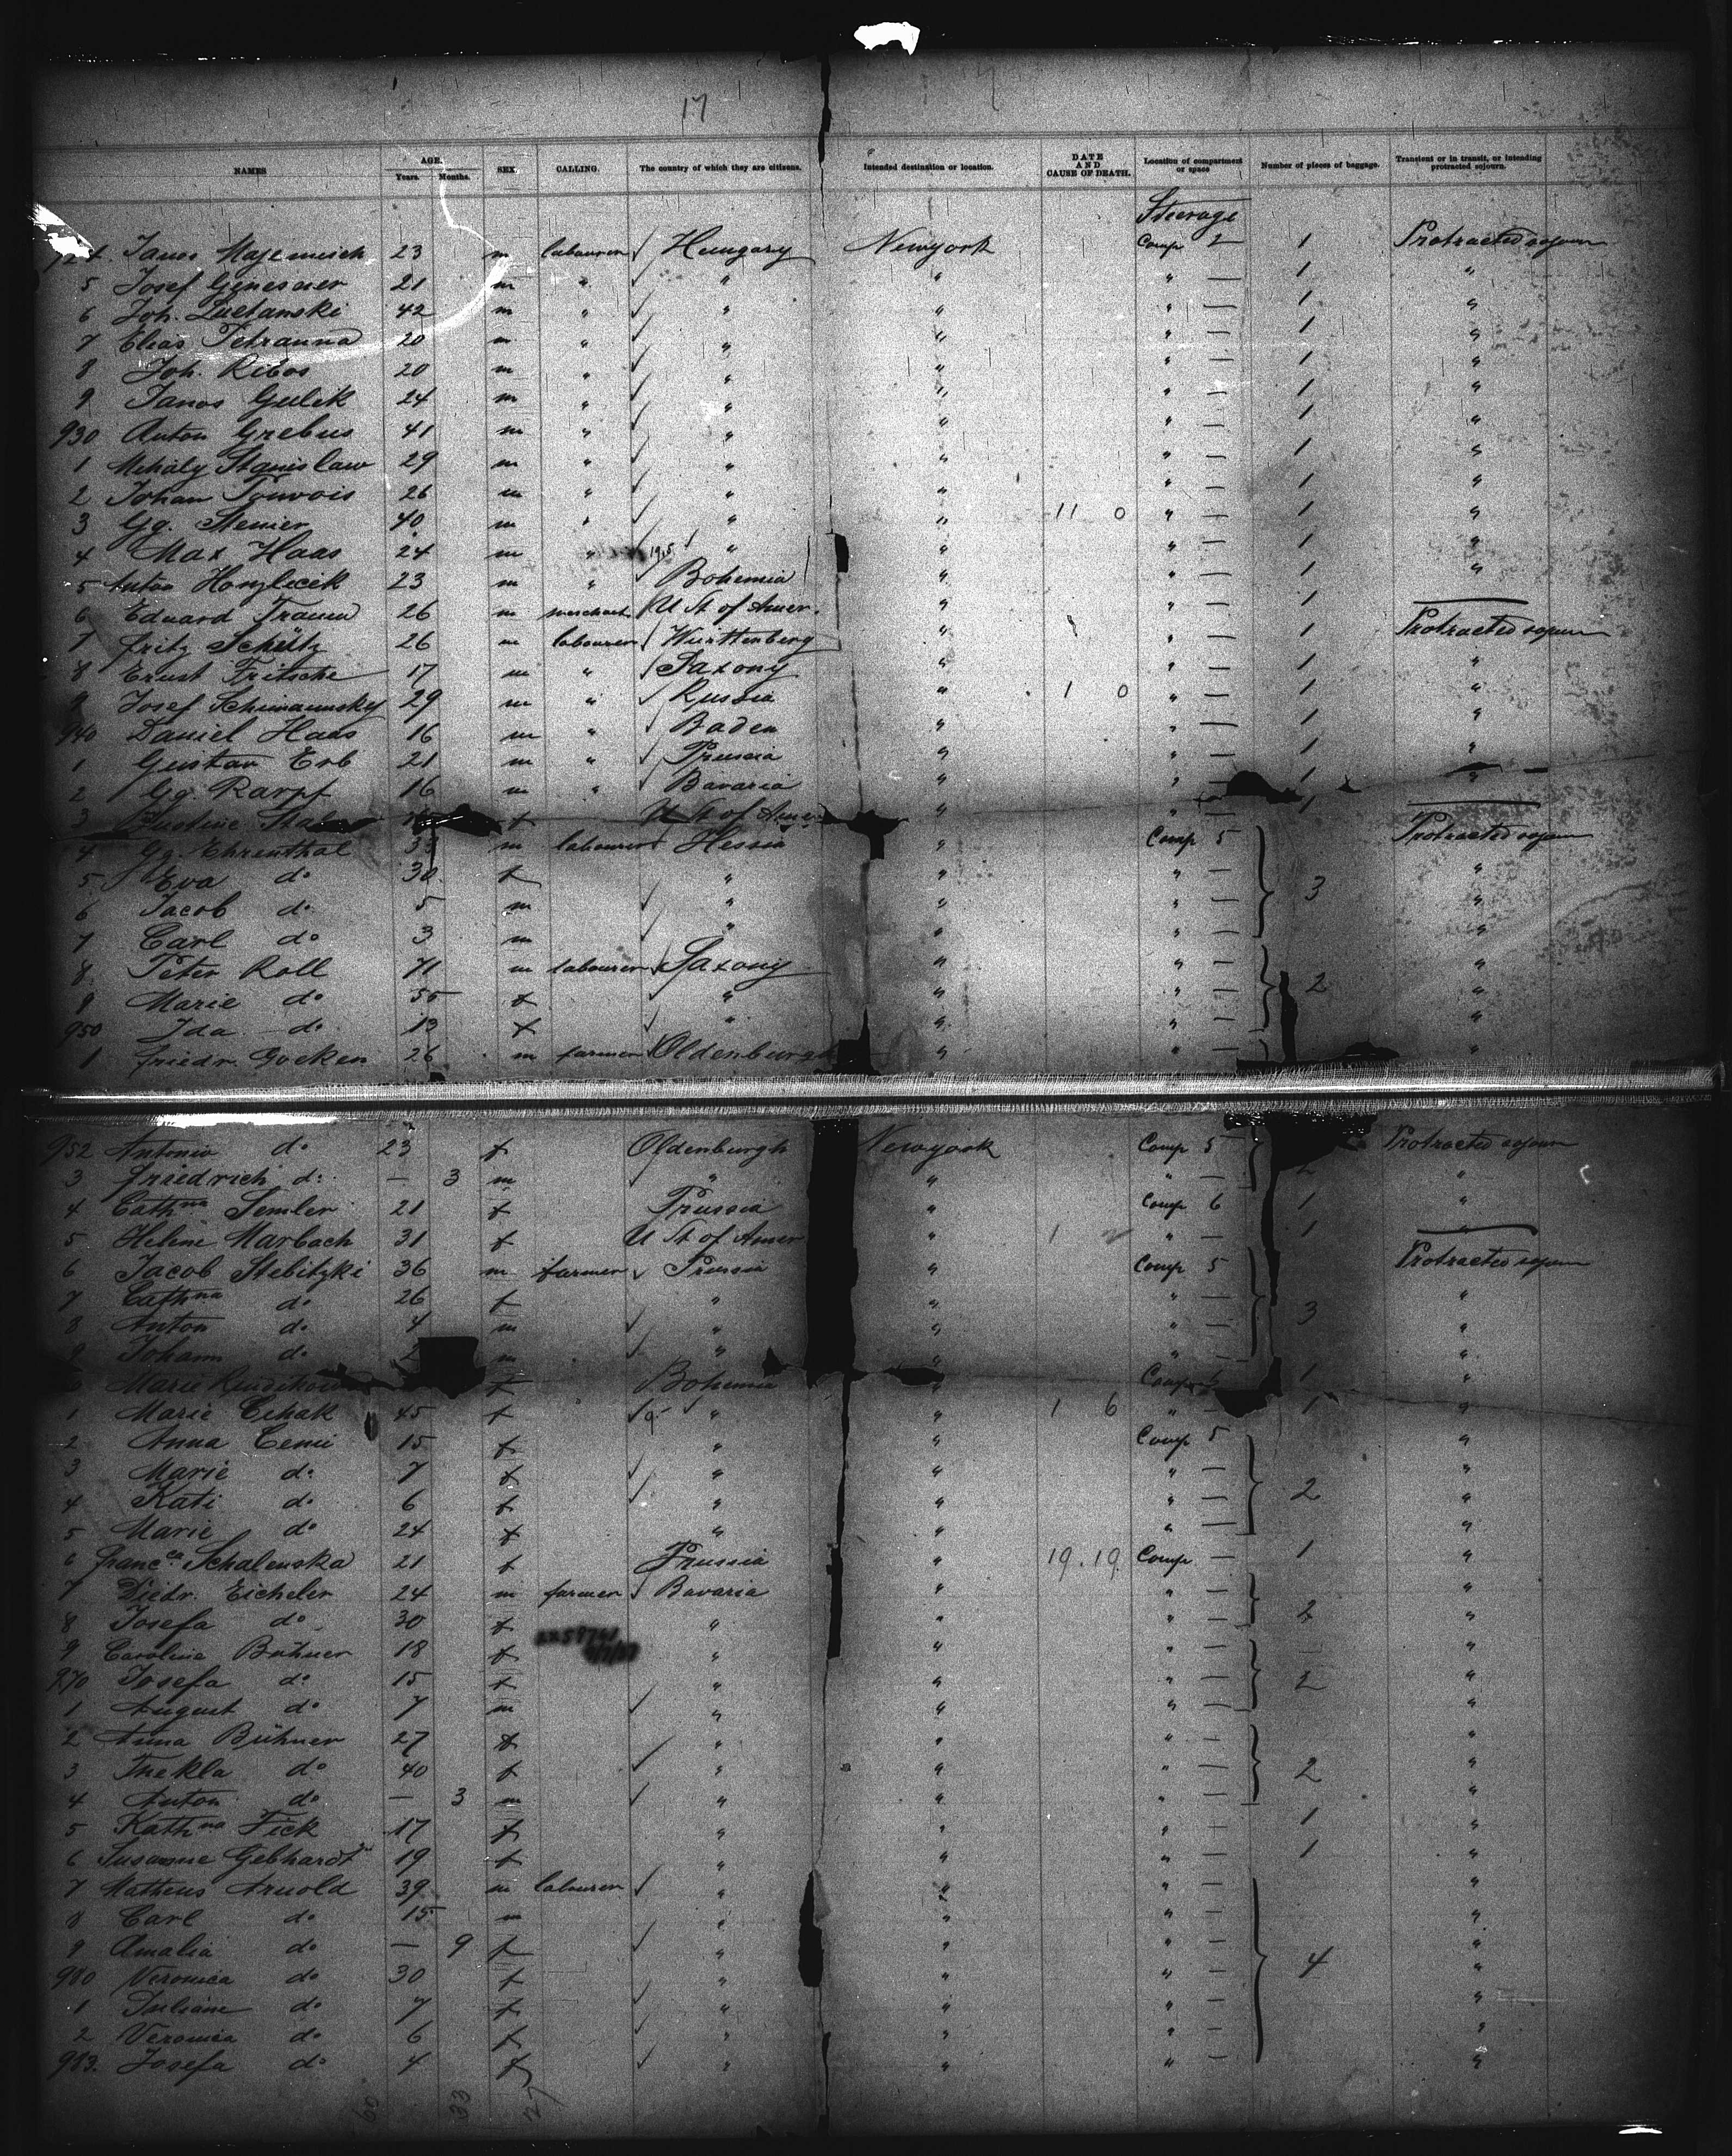 17
NAMES AGE. Years. Months. SEX. CALLING. The country of which they are citizens. Intended destination or location. DATE AND CAUSE OF DEATH. Location of compartment or space Number of pieces of baggage. Transient or in transit, or intending protracted sojourn.
Steerage
Janos 23 m labourer Hungary Newyork Comp 2 1 Protracted sojourn
5 Josef 21 m " " " " — 1 "
6 Joh. 42 m " " " " — 1 "
7 Elias 20 m " " " " — 1 "
8 Joh. Ribos 20 m " " " " — 1 "
9 Janos Gulik 24 m " " " " — 1 "
930 Anton Grebus 41 m " " " " — 1 "
1 Mihaly Stanislaw 29 m " " " " — 1 "
2 Johan 26 m " " " " — 1 "
3 Gg. 40 m " " " 11 0 " — 1 "
4 Max Haas 24 m " " " " — 1 "
5 Anton 23 m " Bohemia " " — 1 "
6 Eduard 26 m merchant U St of Amer. " " — 1 —
7 Fritz Schültz 26 m labourer Württenberg " " — 1 Protracted sojourn
8 Ernst Fritsche 17 m " Saxony " " — 1 "
9 Josef 29 m " Russia " 1 0 " — 1 "
940 Daniel Haas 16 m " Baden " " — 1 "
1 Gustav Erb 21 m " Prussia " " — 1 "
2 Gg. Karpf 16 m " Bavaria " " — 1 "
3 f U St of Amer. " " — 1 —
4 Gg. Ehrenthal m labourer Hessia " Comp 5 Protracted sojourn
5 Eva do 30 f " " " — 3 "
6 Jacob do 5 m " " " — "
7 Carl do 3 m " " " — "
8 Peter Roll 71 m labourer Saxony " " — 2 "
9 Marie do 55 f " " " — "
950 Ida do 13 f " " " — "
1 Friedr. Gocken 26 m farmer Oldenburgh " " — "
952 Antonia do 23 f Oldenburgh Newyork Comp 5 Protracted sojourn
3 Friedrich do — 3 m " " " — 2 "
4 Cathna Semler 21 f Prussia " Comp 6 1 "
5 Helene Marbach 31 f U St of Amer " 1 2 " — 1 —
6 Jacob Stebitzki 36 m farmer Prussia " Comp 5 Protracted sojourn
7 Cathna do 26 f " " " — 3 "
8 Anton do 4 m " " " — "
9 Johann do 2 m " " " — "
Marie f Bohemia " Comp 1 "
1 Marie Cihak 45 f " " 1 6 " — 1 "
2 Anna 15 f " " Comp 5 "
3 Marie do 7 f " " " — 2 "
4 Kati do 6 f " " " — "
5 Marie do 24 f " " " — "
6 Francca Schalenska 21 f Prussia " 19.19. Comp — 1 "
7 Diedr. Eicheler 24 m farmer Bavaria " " — 2 "
8 Josefa do 30 f " " " — "
9 Carolina Bühner 18 f " " " — "
970 Josefa do 15 f " " " — 2 "
1 August do 7 m " " " — "
2 Anna Bühner 27 f " " " — "
3 Thekla do 40 f " " " — 2 "
4 Anton do — 3 m " " " — "
5 Kathna Fick 17 f " " " — 1 "
6 Susanne Gebhardt 19 f " " " — 1 "
7 Matheus Arnold 39 m labourer " " " — "
8 Carl do 15 m " " " — "
9 Amalia do — 9 f " " " — 4 "
980 Veronica do 30 f " " " — "
1 Juliane do 7 f " " " — "
2 Veronica do 6 f " " " — "
983. Josefa do 4 f " " " — "
60 33 27